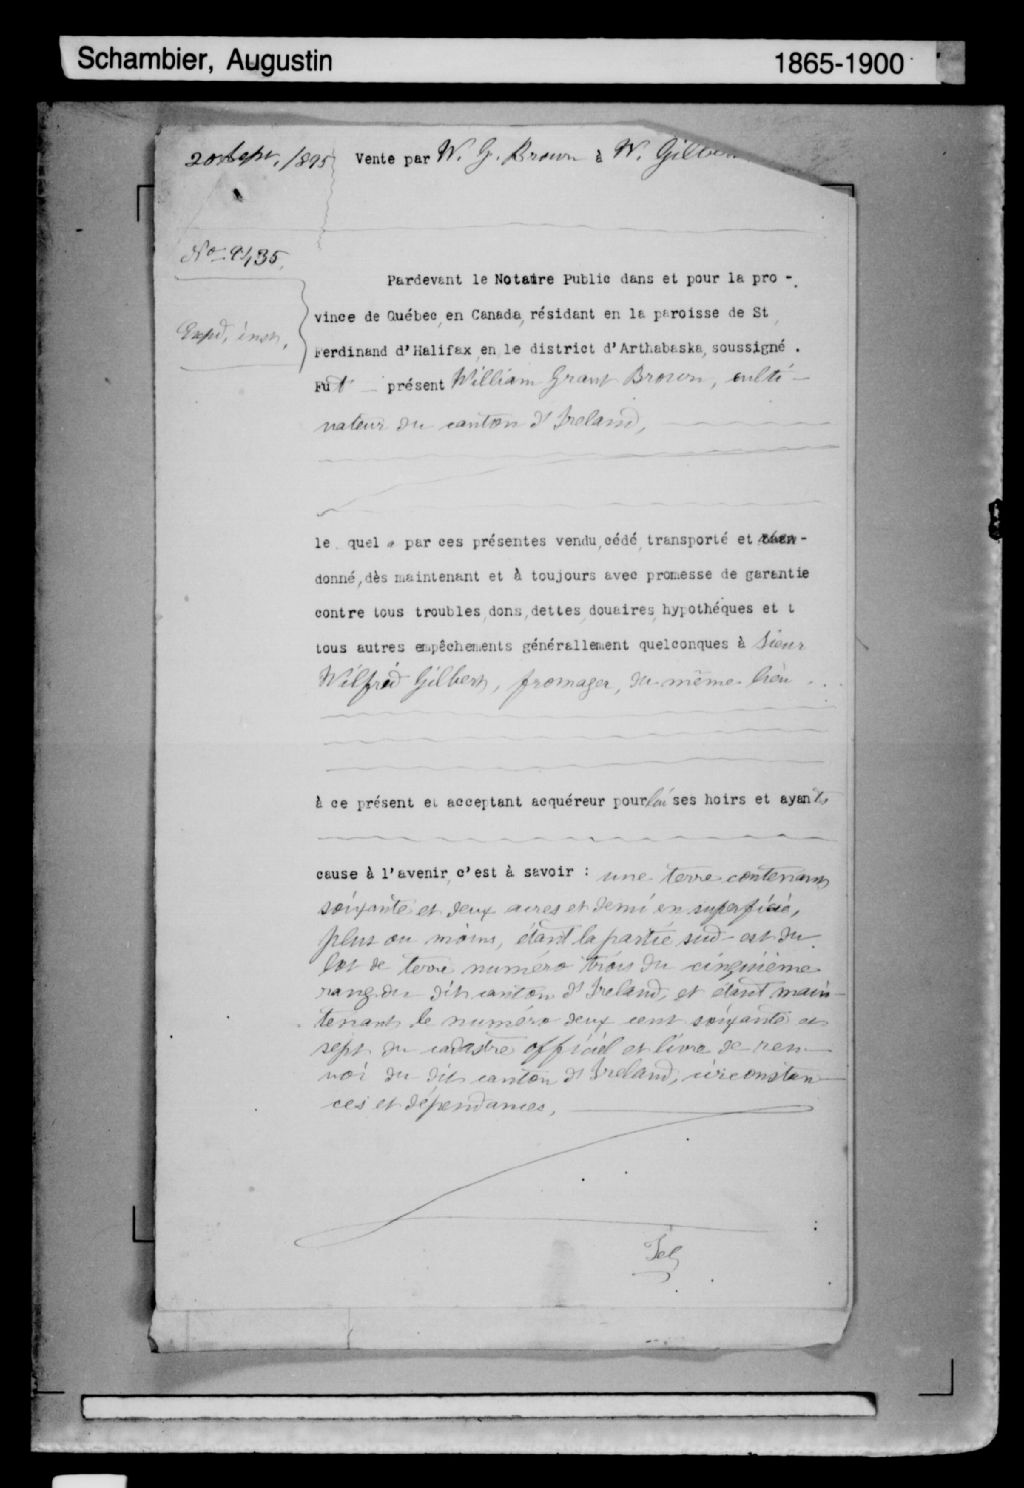 Schambier, Augustin
1865-1900
20 Sept. 1895 Vente par W. G. Brown à W. Gilber
No 9435.
Expd. insn.
Pardevant le Notaire Public dans et pour la pro -
vince de Québec, en Canada, résidant en la paroisse de St
Ferdinand d'Halifax, en le district d'Arthabaska, soussigné .
Fut présent William Grant Brown, culti-
vateur du canton d'Ireland,
le quel a par ces présentes vendu, cédé, transporté et aban-
donné, dès maintenant et à toujours avec promesse de garantie
contre tous troubles, dons, dettes, douaires, hypothéques et t
tous autres empêchements générallement quelconques à Sieur
Wilfrid Gilbert, fromager, du même lieu
à ce présent et acceptant acquéreur pour lui ses hoirs et ayants
cause à l'avenir, c'est à savoir : une terre contenant
soixante et deux acres et demi en superficie,
plus ou moins, étant la partie sud-est du
lot de terre numéro trois du cinquième
rang du dit canton d'Ireland, et étant main-
tenant le numéro deux cent soixante et
sept du cadastre officiel et livre de ren-
voi du dit canton d'Ireland, circonstan-
ces et dépendances,
Tel